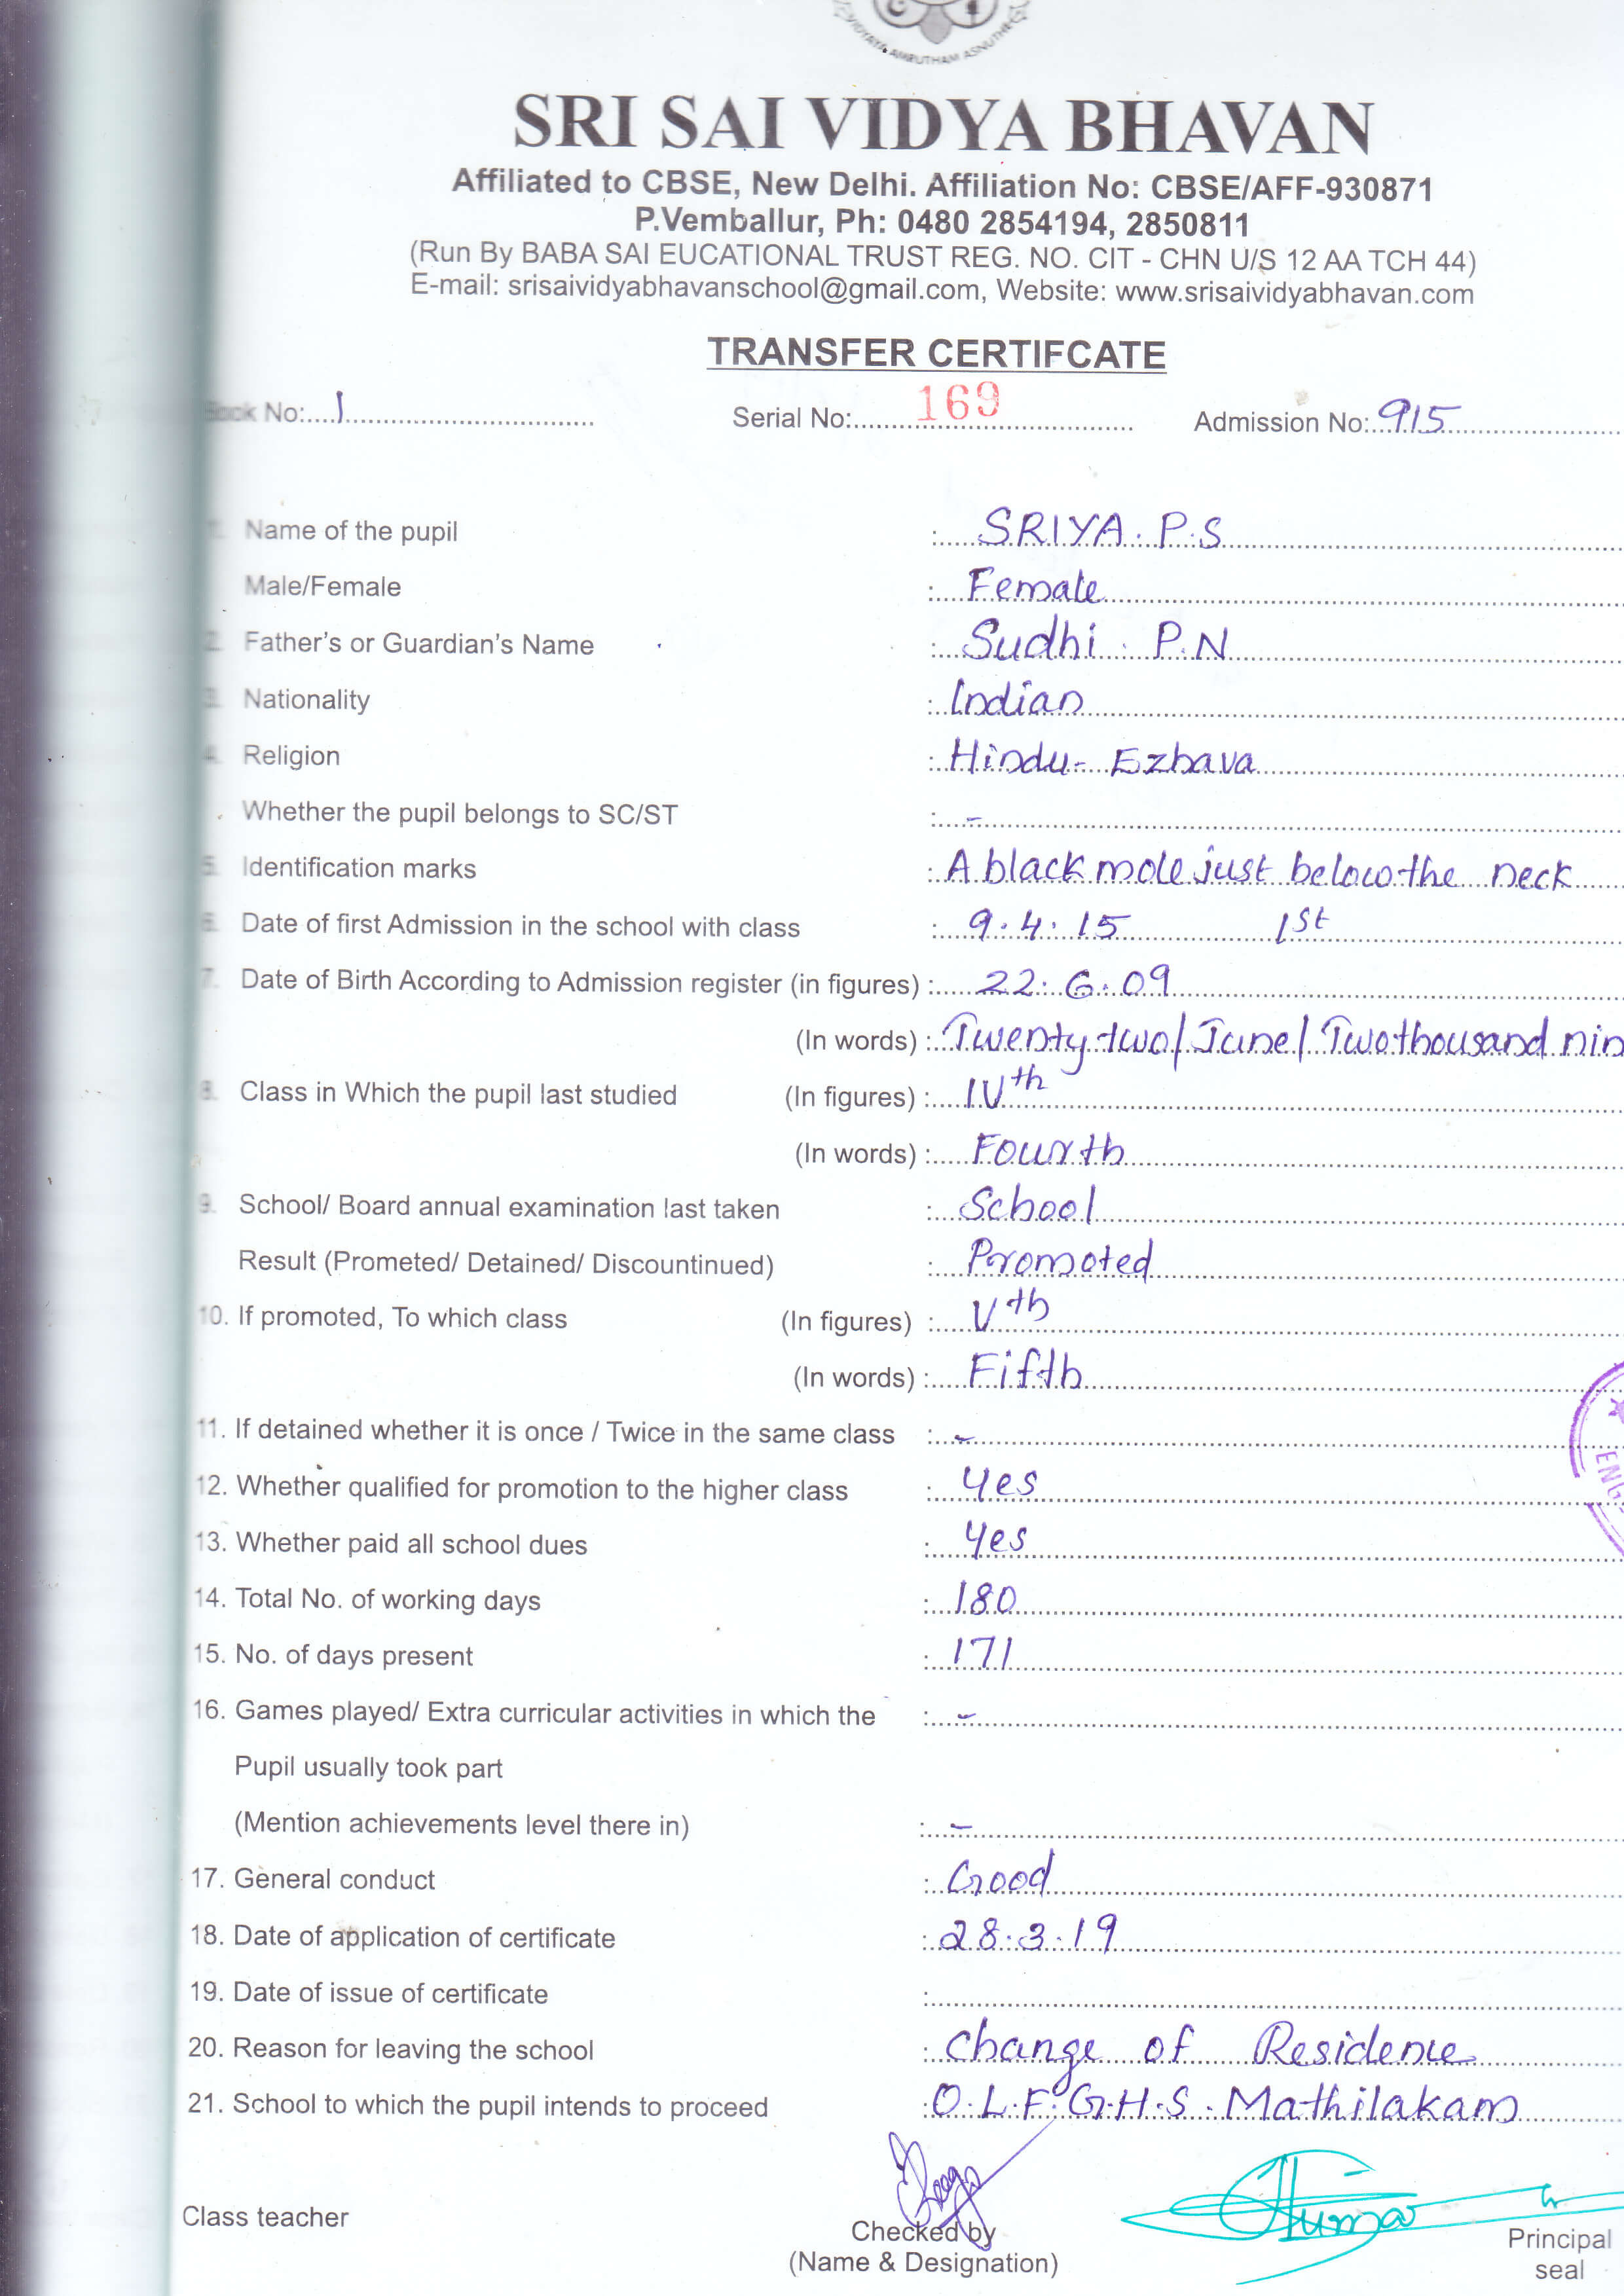 VIDYAYA AMRUTHAM ASNUTHE
SRI SAI VIDYA BHAVAN
Affiliated to CBSE, New Delhi. Affiliation No: CBSE/AFF-930871
P.Vemballur, Ph: 0480 2854194, 2850811
(Run By BABA SAI EUCATIONAL TRUST REG. NO. CIT - CHN U/S 12 AA TCH 44)
E-mail: srisaividyabhavanschool@gmail.com, Website: www.srisaividyabhavan.com
TRANSFER CERTIFCATE
Book No:....1.... Serial No:....169.... Admission No:..915....
1. Name of the pupil :....SRIYA. P.S
Male/Female :....Female
2. Father's or Guardian's Name :....Sudhi. P.N
3. Nationality :..Indian
4. Religion :..Hindu- Ezhava
Whether the pupil belongs to SC/ST :....-
5. Identification marks :..A black mole just below the neck
6. Date of first Admission in the school with class :....9.4.15 1st
7. Date of Birth According to Admission register (in figures) :....22.6.09
(In words) :..Twenty-two/June/Two thousand nin
8. Class in Which the pupil last studied (In figures) :....IVth
(In words) :....Fourth
9. School/ Board annual examination last taken :....School
Result (Prometed/ Detained/ Discountinued) :....Promoted
10. If promoted, To which class (In figures) :....Vth
(In words) :....Fifth
11. If detained whether it is once / Twice in the same class :....-
12. Whether qualified for promotion to the higher class :....Yes
13. Whether paid all school dues :....Yes
14. Total No. of working days :....180
15. No. of days present :....171
16. Games played/ Extra curricular activities in which the :....-
Pupil usually took part
(Mention achievements level there in) :....-
17. General conduct :..Good
18. Date of application of certificate :..28.3.19
19. Date of issue of certificate :....
20. Reason for leaving the school :..Change of Residence
21. School to which the pupil intends to proceed :O.L.F.G.H.S. Mathilakam
Class teacher
Checked by
(Name & Designation)
Principal
seal
ENG